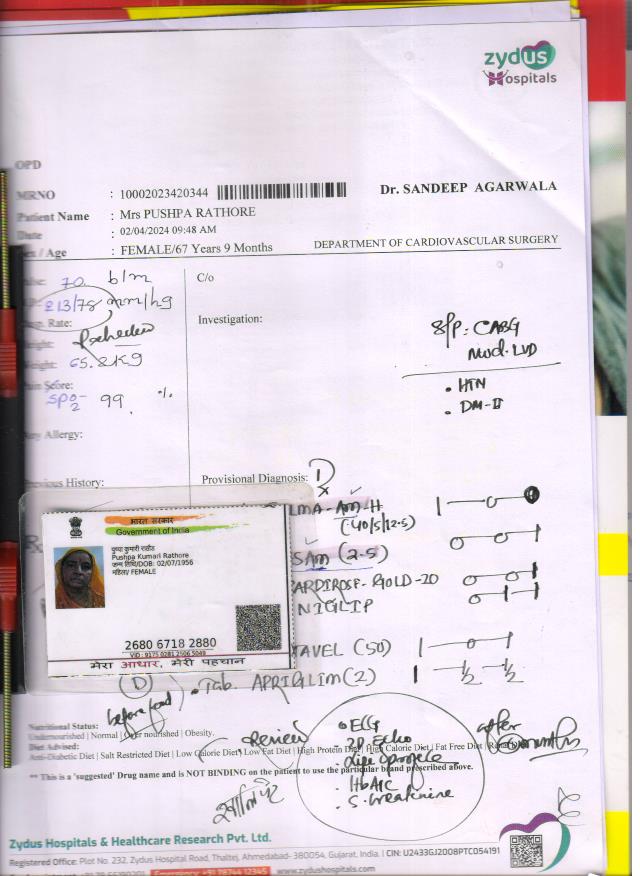 zydus
Hospitals
OPD
MRNO : 10002023420344
Dr. SANDEEP AGARWALA
Patient Name : Mrs PUSHPA RATHORE
Date : 02/04/2024 09:48 AM
Sex / Age : FEMALE/67 Years 9 Months
DEPARTMENT OF CARDIOVASCULAR SURGERY
70 b/m
213/78 mm/hg
Resp. Rate:
Weight: 65.2 kg
Pain Score:
SpO2- 99 %
Any Allergy:
Previous History:
C/o
Investigation:
S/P: CABG
Mod. LVD
• HTN
• DM-II
Provisional Diagnosis:
Rx
LMA-AM-H
(40/5/12.5)
SAM (2.5)
ARDIROSE-GOLD-20
NIGLIP
TAVEL (50)
• Tab. APRIGLIM (2)
before food
भारत सरकार
Government of India
Pushpa Kumari Rathore
जन्म तिथि/DOB: 02/07/1956
महिला/ FEMALE
2680 6718 2880
VID : 9175 0281 2506 5049
मेरा आधार, मेरी पहचान
Nutritional Status:
Undernourished | Normal | Over nourished | Obesity.
Diet Advised:
Anti-Diabetic Diet | Salt Restricted Diet | Low Calorie Diet | Low Fat Diet | High Protein Diet | High Calorie Diet | Fat Free Diet |
** This is a 'suggested' Drug name and is NOT BINDING on the patient to use the particular brand prescribed above.
Review
• ECG
• 2D Echo
• Lipid profile
• HbA1C
• S. Creatinine
after
months
Zydus Hospitals & Healthcare Research Pvt. Ltd.
Registered Office: Plot No. 232, Zydus Hospital Road, Thaltej, Ahmedabad- 380054, Gujarat, India. | CIN: U2433GJ2008PTC054191
Emergency +91 78744 12345 www.zydushospitals.com